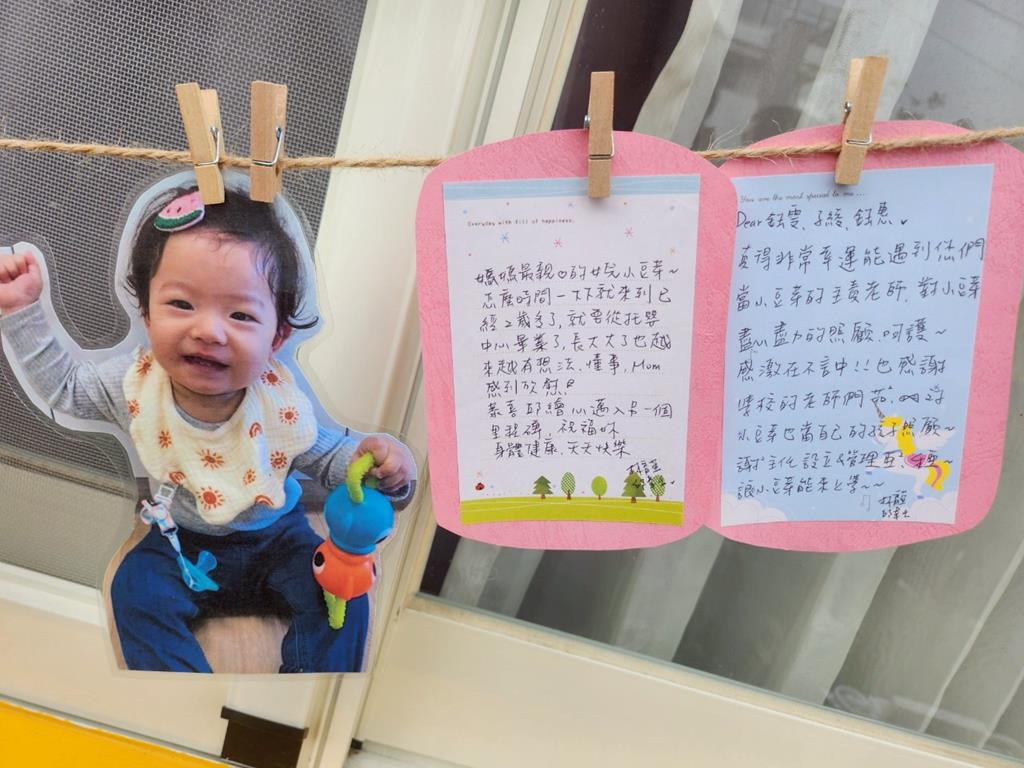 Everyday with fill of happiness.
媽媽最親♡的女兒小豆芽~
怎麼時間一下下就來到已
經2歲多了,就要從托嬰
中心畢業了,長大了也越
來越有想法、懂事,Mom
感到欣慰!
恭喜邱繪心邁入另一個
里程碑,祝福妳
身體健康、天天快樂
You are the most special to me....
Dear 鈺雯、子綾、鈺惠
真得非常幸運能遇到你們
當小豆芽的主責老師,對小豆芽
盡心盡力的照顧、呵護~
感激在不言中!!也感謝
學校的老師們
小豆芽也當自己的孩子照顧~
謝主任設立&管理
讓小豆芽能來上學~~